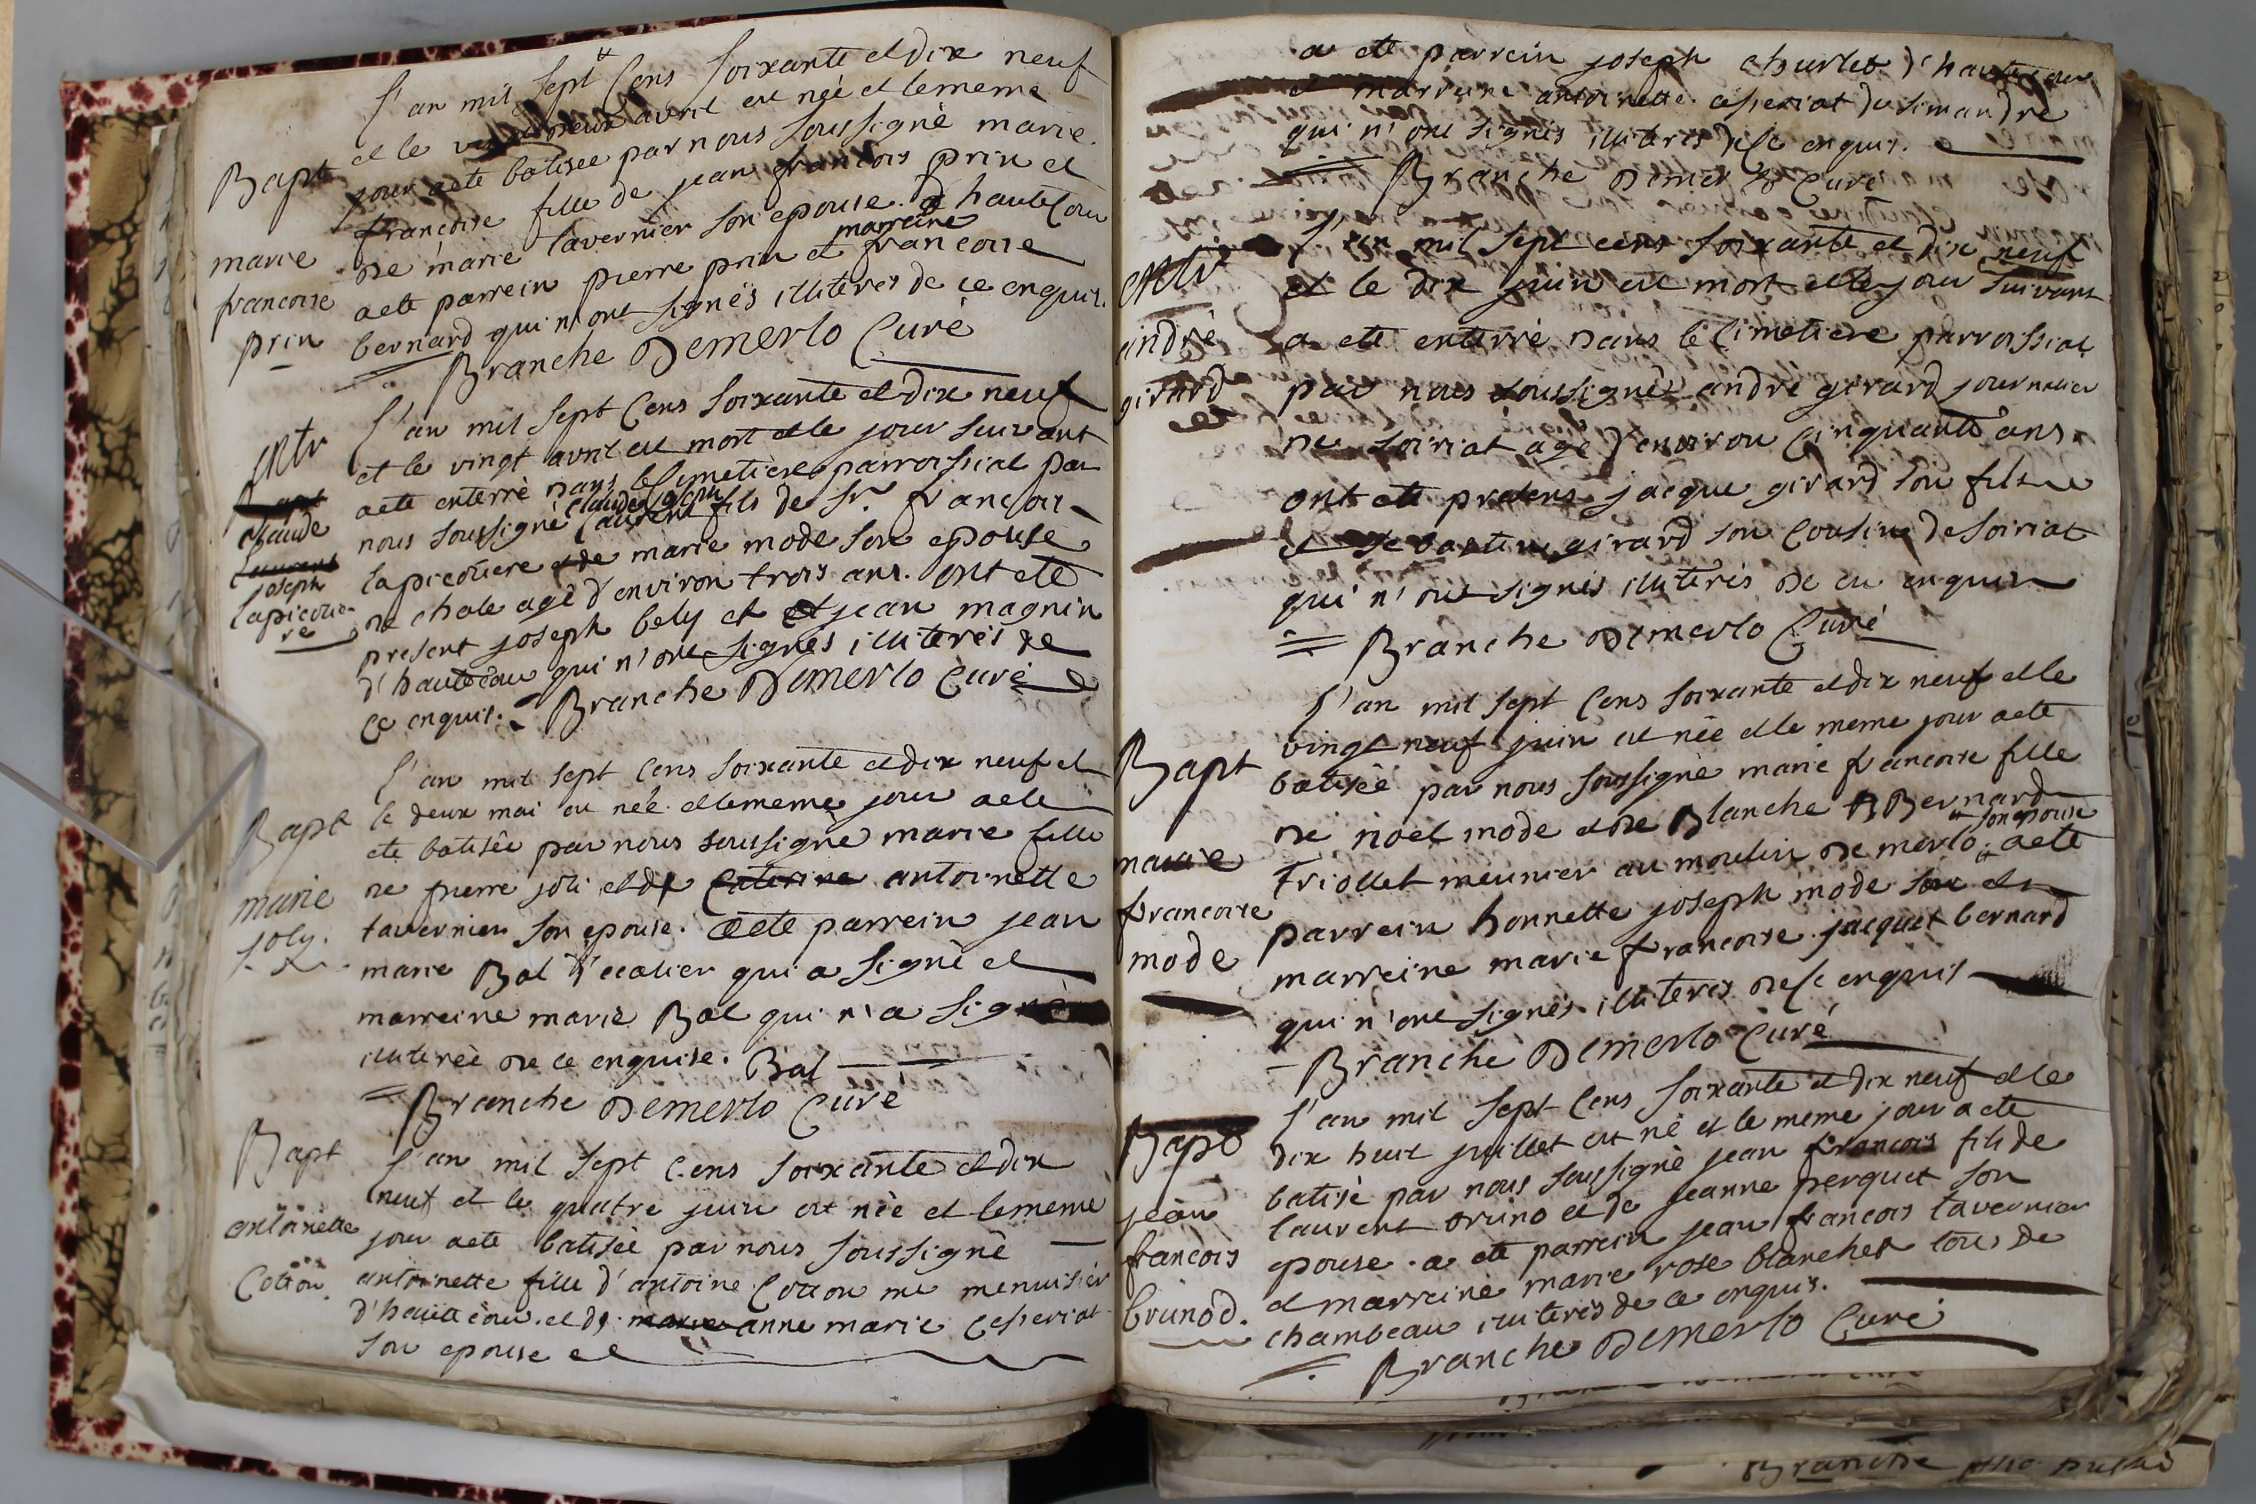 L'an mil sept Cens soixante et dix neuf
et le deux avril est née et le meme
jour a eté batisée par nous soussigné marie
francoise fille de jean francois prin et
de marie tavernier son epouse d'hautecour
a eté parrein pierre prin et marreine francoise
bernard qui n'ont signés illiterés de ce enquis.
Branche Demerlo Curé
Bapt
marie
francoise
prin
L'an mil sept Cens soixante et dix neuf
et le vingt avril est mort et le jour suivant
a eté enterré dans le Cimetiere parroissial par
nous soussigné Claude joseph laurent fils de Sr. francois
lapicotiere et de marie mode son epouse
de chale agé d'environ trois ans. ont eté
present joseph bely et et jean magnin
d'hautecour qui n'ont signés illiterés de
ce enquis. Branche Demerlo Curé
entr
claude
laurent
joseph
lapicotie-
re
L'an mil sept Cens soixante et dix neuf et
le deux mai est née et le meme jour a eté
eté batisée par nous soussigné marie fille
de pierre joli et de Caterine antoinette
tavernier son epouse. a eté parrein jean
marie Bal d'ecolier qui a signé et
marreine marie Bal qui n'a signé
illiterée de ce enquise. Bal
Branche Demerlo Curé
Bapt
marie
joly.
L'an mil sept Cens soixante et dix
neuf et le quatre juin est née et le meme
jour a eté batisée par nous soussigné
antoinette fille d'antoine Cotton me menuisier
d'hautecour et de marie anne marie Cesseriat
son epouse et
Bapt
antoinette
Cotton.
a eté parrein joseph charles d'hautecour
et marreine antoinette cesseriat de simandre
qui n'ont signés illiterés de ce enquis.
Branche Demerlo Curé
L'an mil sept cens soixante et dix neuf
et le dix juin est mort et le jour suivant
a eté enterré dans le Cimetiere parroissial
par nous soussigné andré girard journalier
de soiriat agé d'environ Cinquante ans
ont eté presens jacque girard son fils
et sebastien girard son Cousin de soiriat
qui n'ont signés illiterés de ce enquis
Branche Demerlo Curé
entr
andré
girard
L'an mil sept Cens soixante et dix neuf et le
vingt neuf juin est née et le meme jour a eté
batisée par nous soussigné marie francoise fille
de noel mode et de Blanche Bernard
triollet meunier au moulin de merlo son epouse a eté
parrein honnette joseph mode son et
marreine marie francoise jacquet bernard
qui n'ont signés illiterés de ce enquis
Branche Demerlo Curé
Bapt
marie
francoise
mode
L'an mil sept Cens soixante et dix neuf et le
dix huit juillet est né et le meme jour a eté
batisé par nous soussigné jean francois fils de
laurent bruno et de jeanne perquet son
epouse. a eté parrein jean francois tavernier
et marreine marie rose blanchet tous de
chambeau illiterés de ce enquis.
Branche Demerlo Curé
Bapt
jean
francois
brunod.
Branche